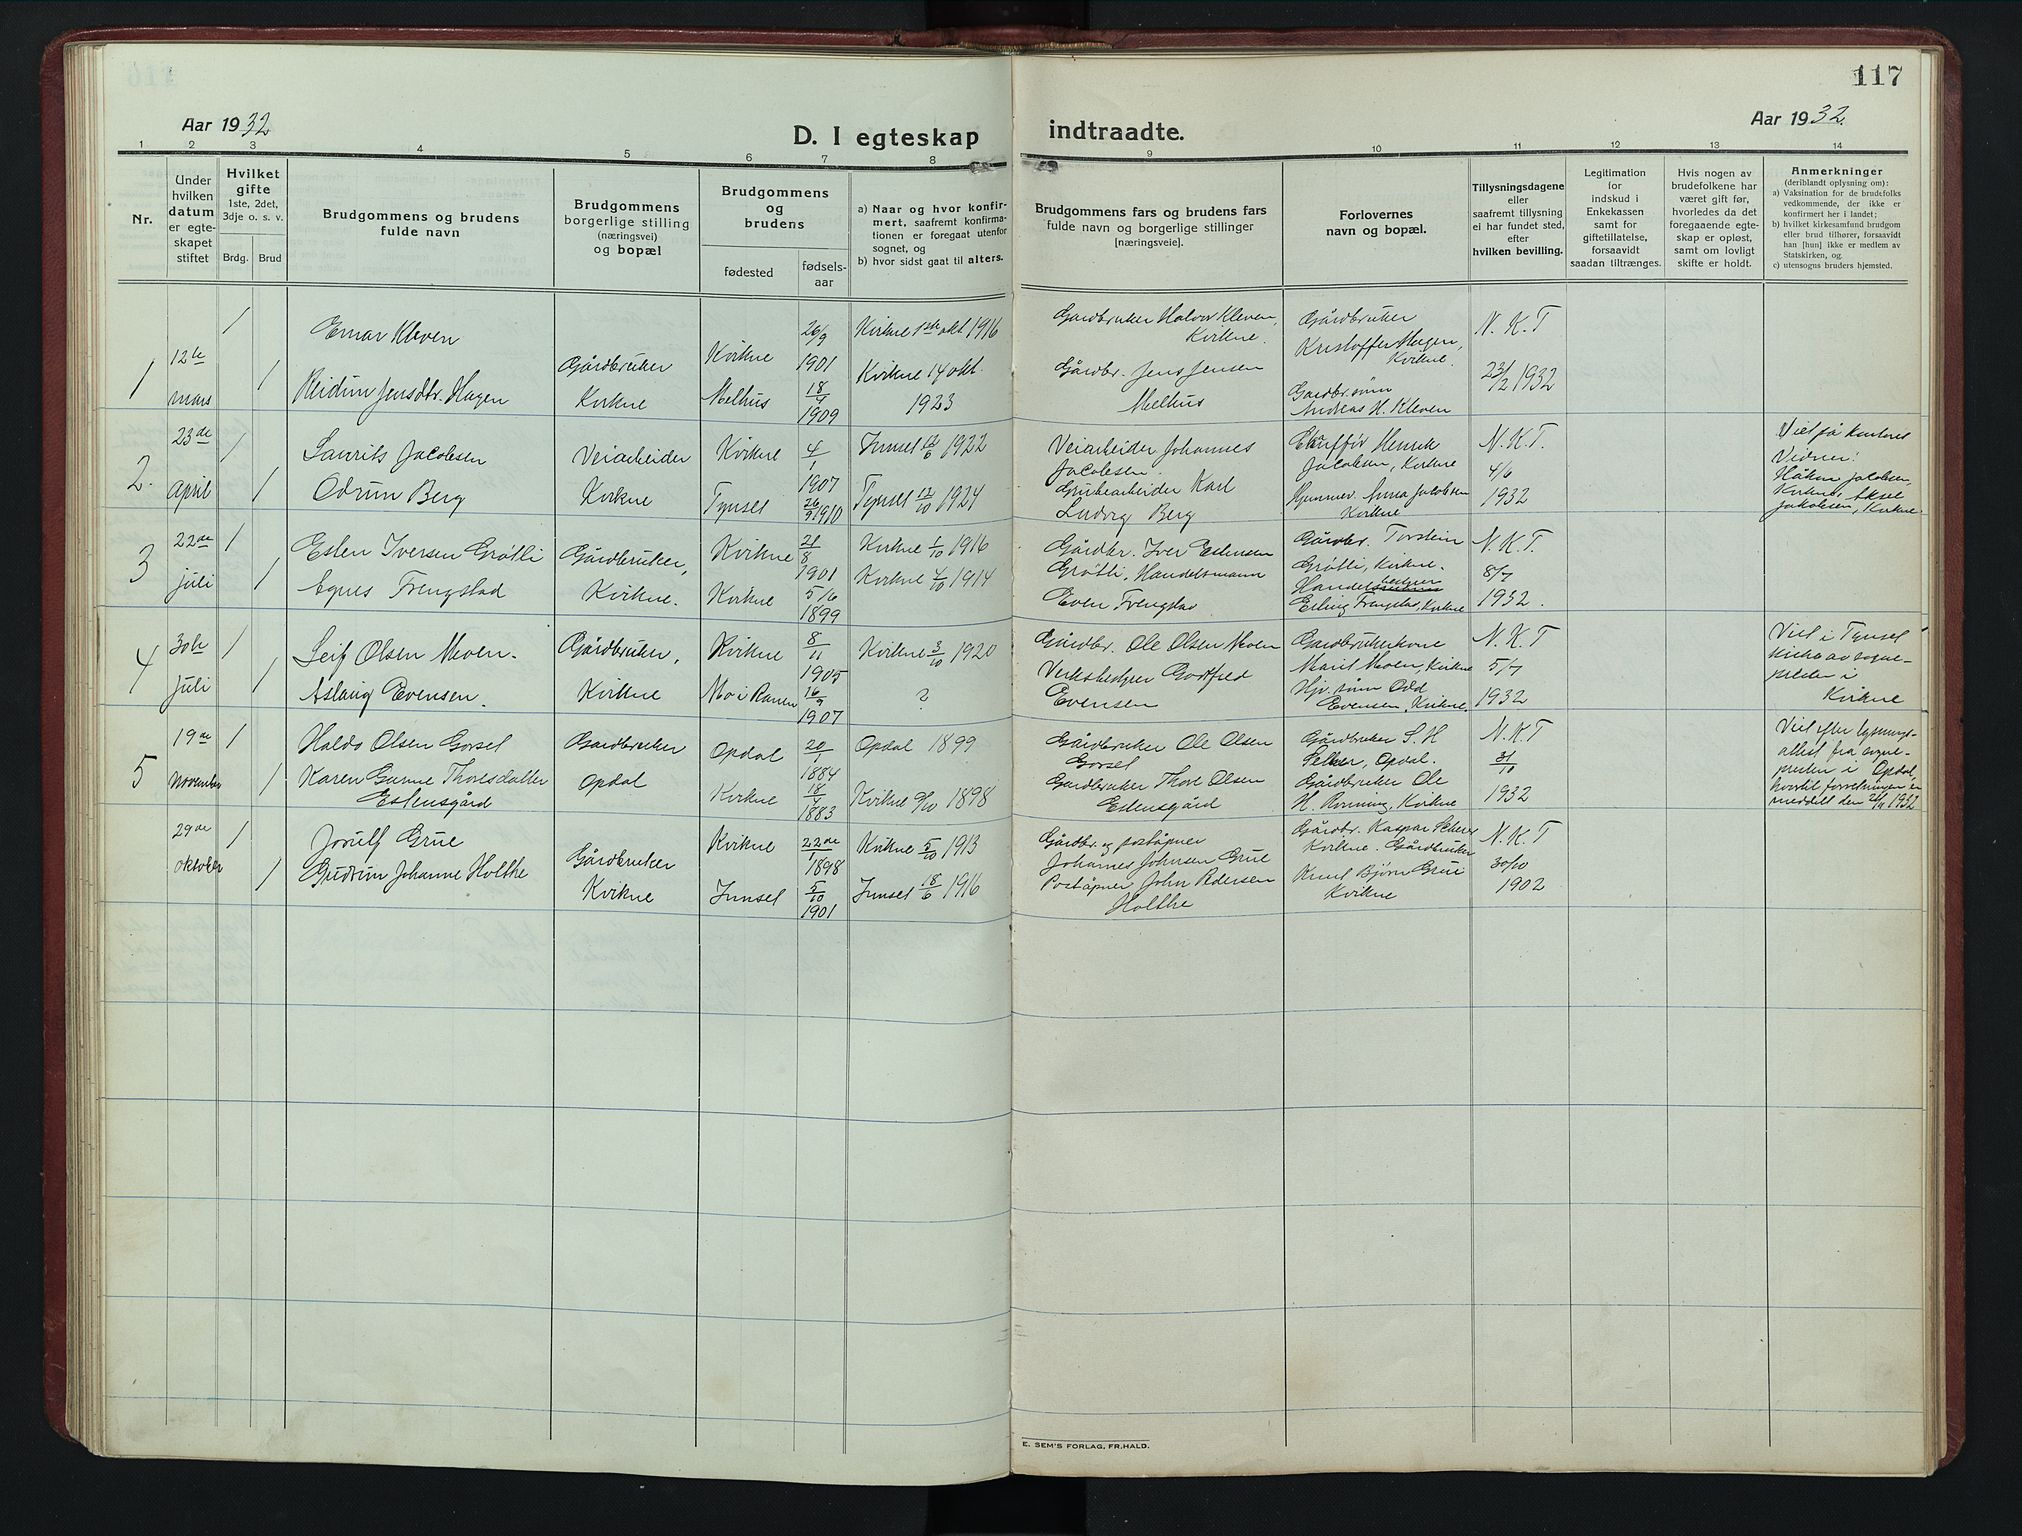 117
Aar 1932
D. I egteskap indtraadte.
Aar 1932.
1 2 3 4 5 6 7 8 9 10 11 12 13 14
Nr.
Under
hvilken
datum
er egte-
skapet
stiftet
Hvilket
gifte
1ste, 2det,
3dje o. s. v.
Brdg. Brud
Brudgommens og brudens
fulde navn
Brudgommens
borgerlige stilling
(næringsvei)
og bopæl
Brudgommens
og
brudens
fødested
fødsels-
aar
a) Naar og hvor konfir-
mert, saafremt konfirma-
tionen er foregaat utenfor
sognet, og
b) hvor sidst gaat til alters.
Brudgommens fars og brudens fars
fulde navn og borgerlige stillinger
[næringsveie].
Forlovernes
navn og bopæl.
Tillysningsdagene
eller
saafremt tillysning
ei har fundet sted,
efter
hvilken bevilling.
Legitimation
for
indskud i
Enkekassen
samt for
giftetillatelse,
forsaavidt
saadan tiltrænges.
Hvis nogen av
brudefolkene har
været gift før,
hvorledes da det
foregaaende egte-
skap er opløst,
samt om lovligt
skifte er holdt.
Anmerkninger
(deriblandt oplysning om):
a) Vaksination for de brudefolks
vedkommende, der ikke er
konfirmert her i landet;
b) hvilket kirkesamfund brudgom
eller brud tilhører, forsaavidt
han [hun] ikke er medlem av
Statskirken, og
c) utensogns bruders hjemsted.
1
12te
mars
1
1
Einar Kleven
Reidun Jensdtr. Hagen
Gårdbruker
Kvikne
Kvikne
Melhus
26/9
1901
18/4
1909
Kvikne 1ste okt 1916
Kvikne 14 okt.
1923
Gardbruker Halvor Kleven,
Kvikne.
Gårdbr. Jens Jensen
Melhus
Gårdbruker
Kristoffer Hagen,
Kvikne.
Gardbr. sønn
Andreas H. Kleven
N. K. T
23/2 1932
2.
23de
april
1
1
Laurits Jacobsen
Odrun Berg
Veiarbeider
Kvikne
Kvikne
Tynset
4/1
1907
26/9 1910
Innset 1922
Tynset 12/10 1924
Veiarbeider Johannes
Jacobsen.
Grubearbeider Karl
Ludvig Berg
Henrik
Jacobsen, Kvikne
Anna Jacobsen
Kvikne
N. K. T.
4/6
1932
Viet på kontoret
Vidner:
Håkon Jacobsen,
Kvikne, Aksel
Jakobsen, Kvikne.
3
22de
juli
1
1
Esten Iversen Grøtli
Agnes Frengstad
Gårdbruker,
Kvikne.
Kvikne
Kvikne
21/8
1901
5/6
1899
Kvikne 1/10 1916
Kvikne 4/10 1914
Gårdbr. Iver Estensen
Grøtli, Handelsmann
Even Frengstad
Gårdbr. Torstein
Grøtli, Kvikne.
Handels bestyrer
Erling Frengstad, Kvikne
N. K. T.
8/7
1932.
4
30te
juli
1
1
Leif Olsen Moen.
Aslaug Evensen.
Gårdbruker,
Kvikne
Kvikne
Mo i Ranen
8/11
1905
16/9
1907
Kvikne 3/10 1920
?
Gårdbr. Ole Olsen Moen
Verksbestyrer Godtfred
Evensen
Gardbrukerkone
Marit Moen Kvikne
Hjv. sønn Odd
Evensen, Kvikne.
N. K. T
5/7
1932
Viet i Tynset
kirke av sogne-
presten i
Kvikne
5
19de
november
1
1
Haldo Olsen Gorset
Karen Gurine Thoresdatter
Estensgård
Gardbruker
Opdal
Opdal
Kvikne
20/1
1884
18/4
1883
Opdal 1899
Kvikne 9/10 1898
Gårdbruker Ole Olsen
Gorset
Gardbruker Thore Olsen
Estensgård
Gårdbruker S. H
Opdal.
Gårdbruker Ole
H. Rønning, Kvikne
N. K. T
31/10
1932
Viet efter lysnings-
attest fra sogne-
presten i Opdal,
hvortil forretningen er
meddelt den 21/11 1932
29de
oktober
1
1
Jorulf Grue
Gudrun Johanne Holthe
Gårdbruker
Kvikne
Kvikne
Innset
22de/1
1898
5/10
1901
Kvikne 5/10 1913
Innset 18/6 1916
Gårdbr. og poståpner
Johannes Johnsen Grue
Postapner John Pedersen
Holthe
Gårdbr. Kaspar
Kvikne. Gårdbruker
Knut Bjørn Grue
Kvikne
N. K. T
30/10
1902
E. SEM'S FORLAG, FR.HALD.